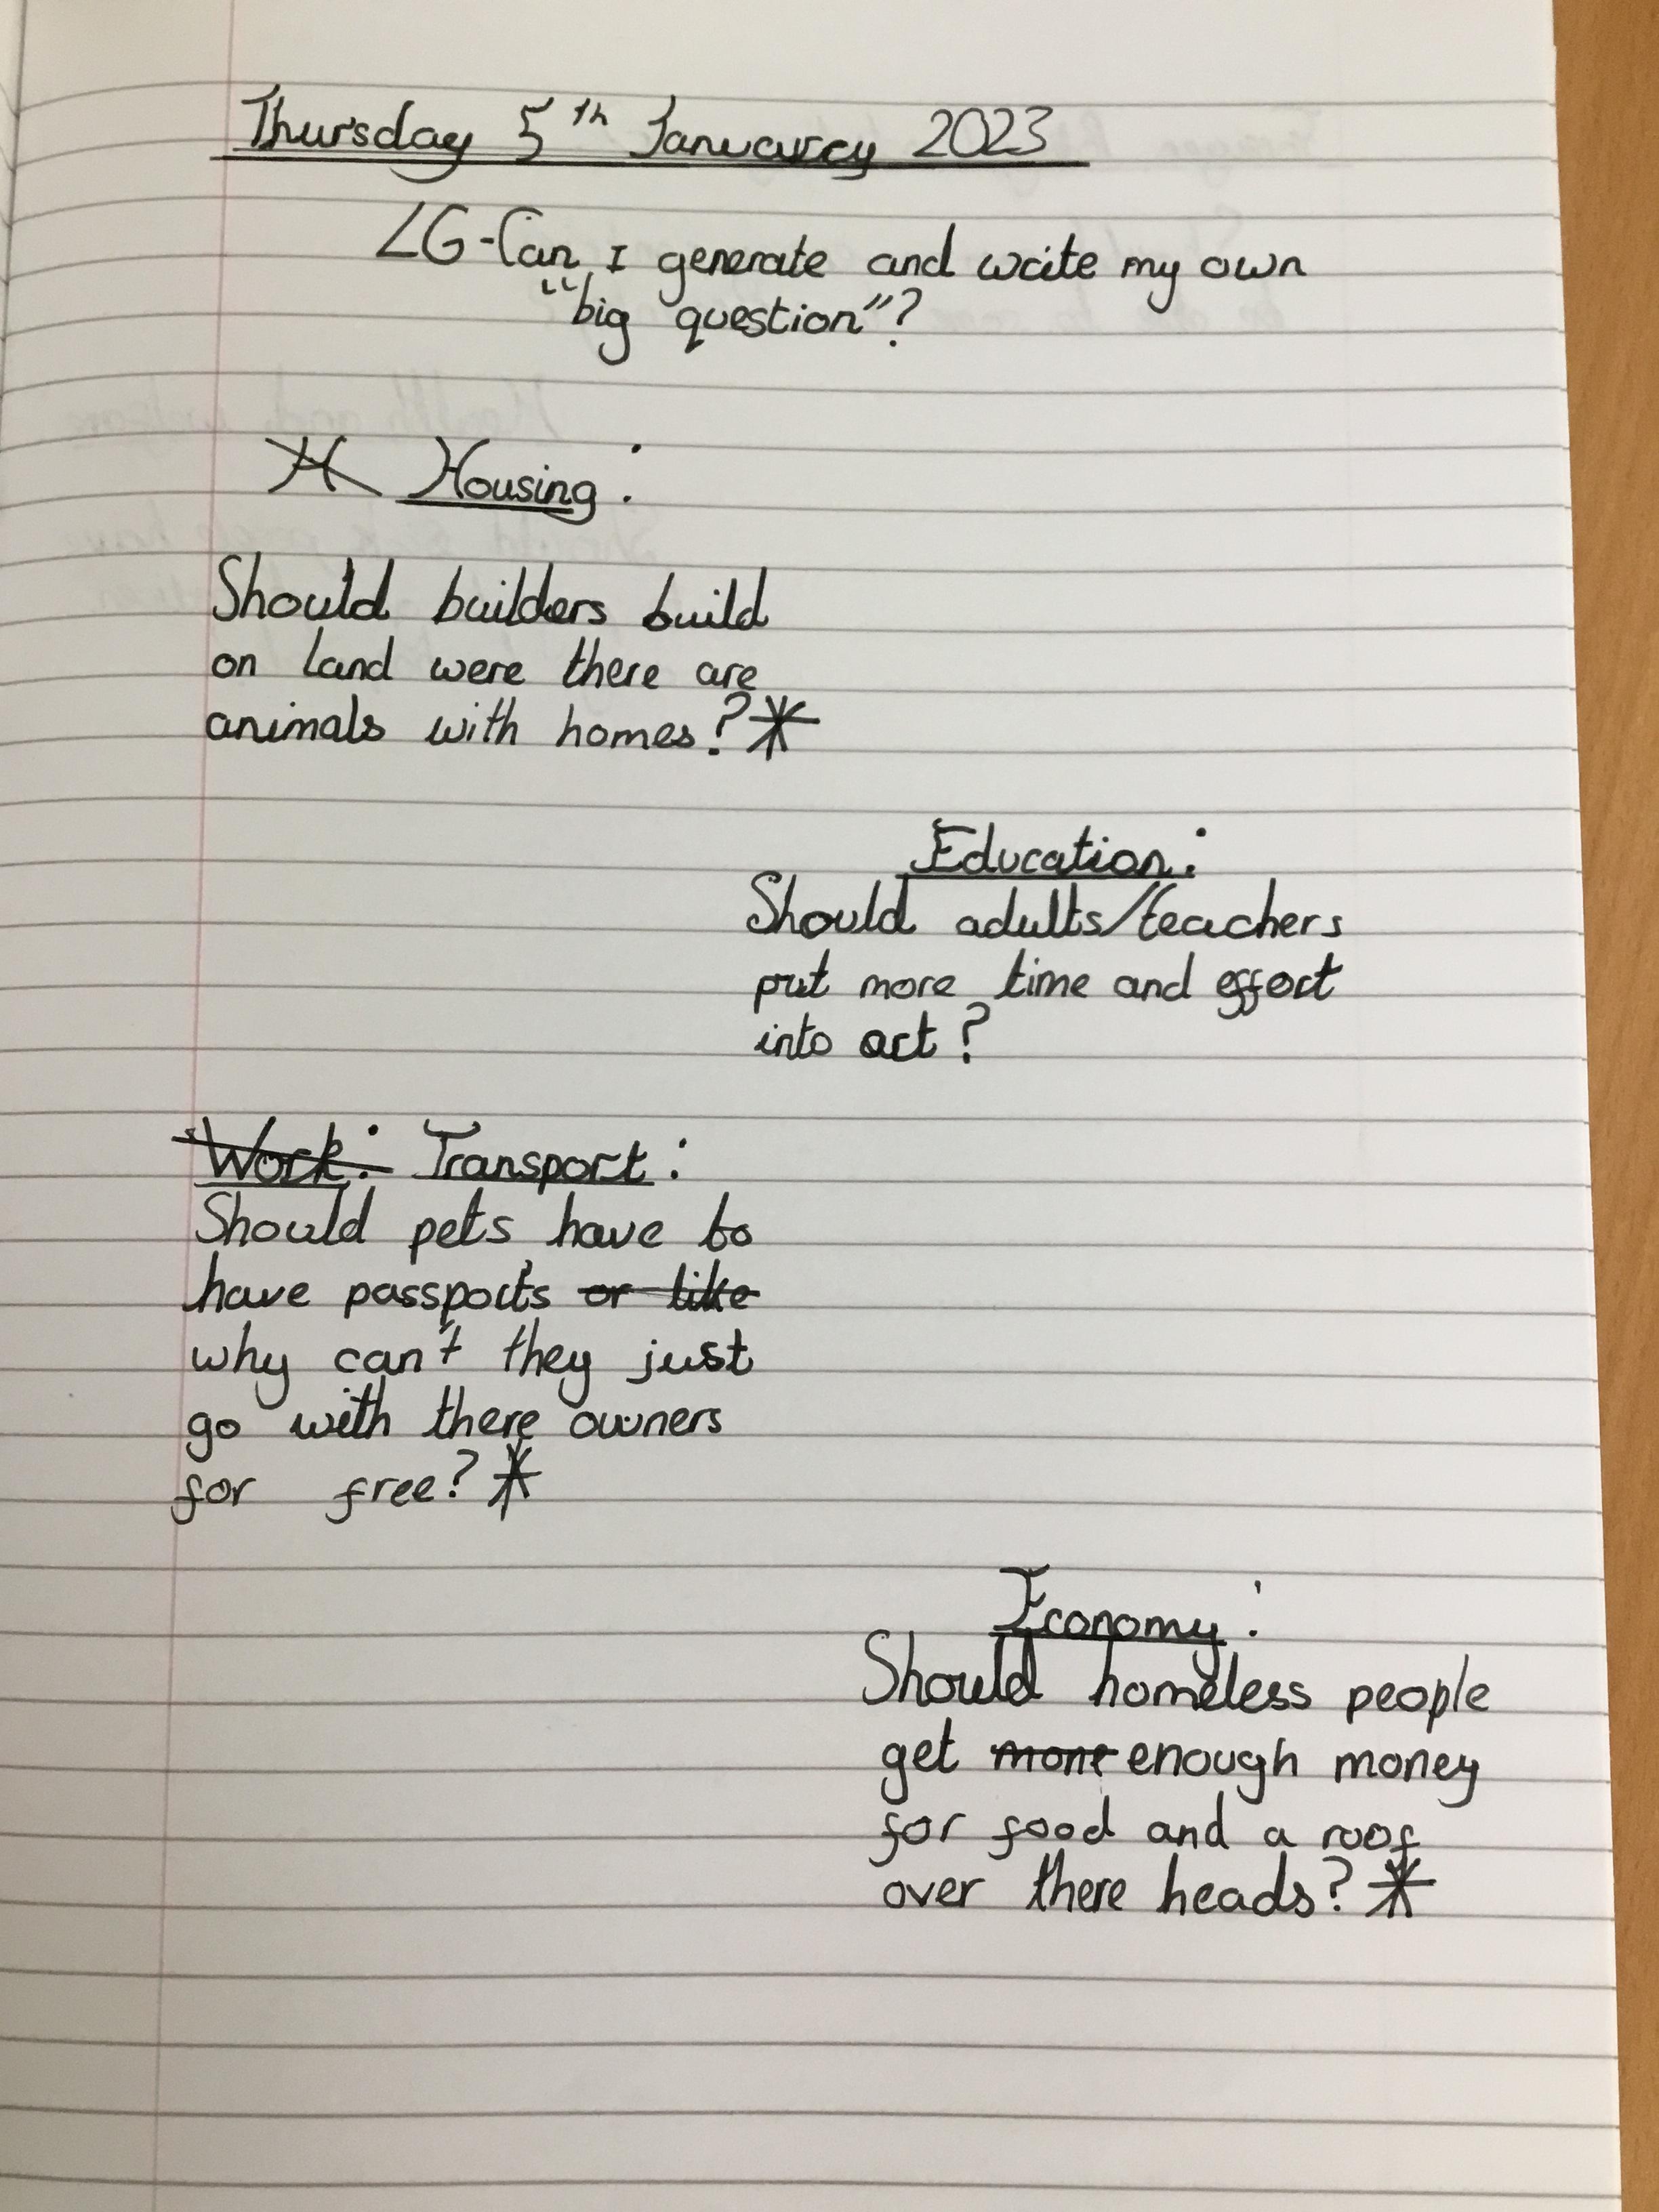 Thursday 5th January 2023
LG-Can I generate and write my own
"big question"?
Housing:
Should builders build
on land were there are
animals with homes?*
Education:
Should adults/teachers
put more time and effort
into art?
Work: Transport:
Should pets have to
have passports or like
why can't they just
go with there owners
for free?*
Economy:
Should homeless people
get more enough money
for food and a roof
over there heads?*